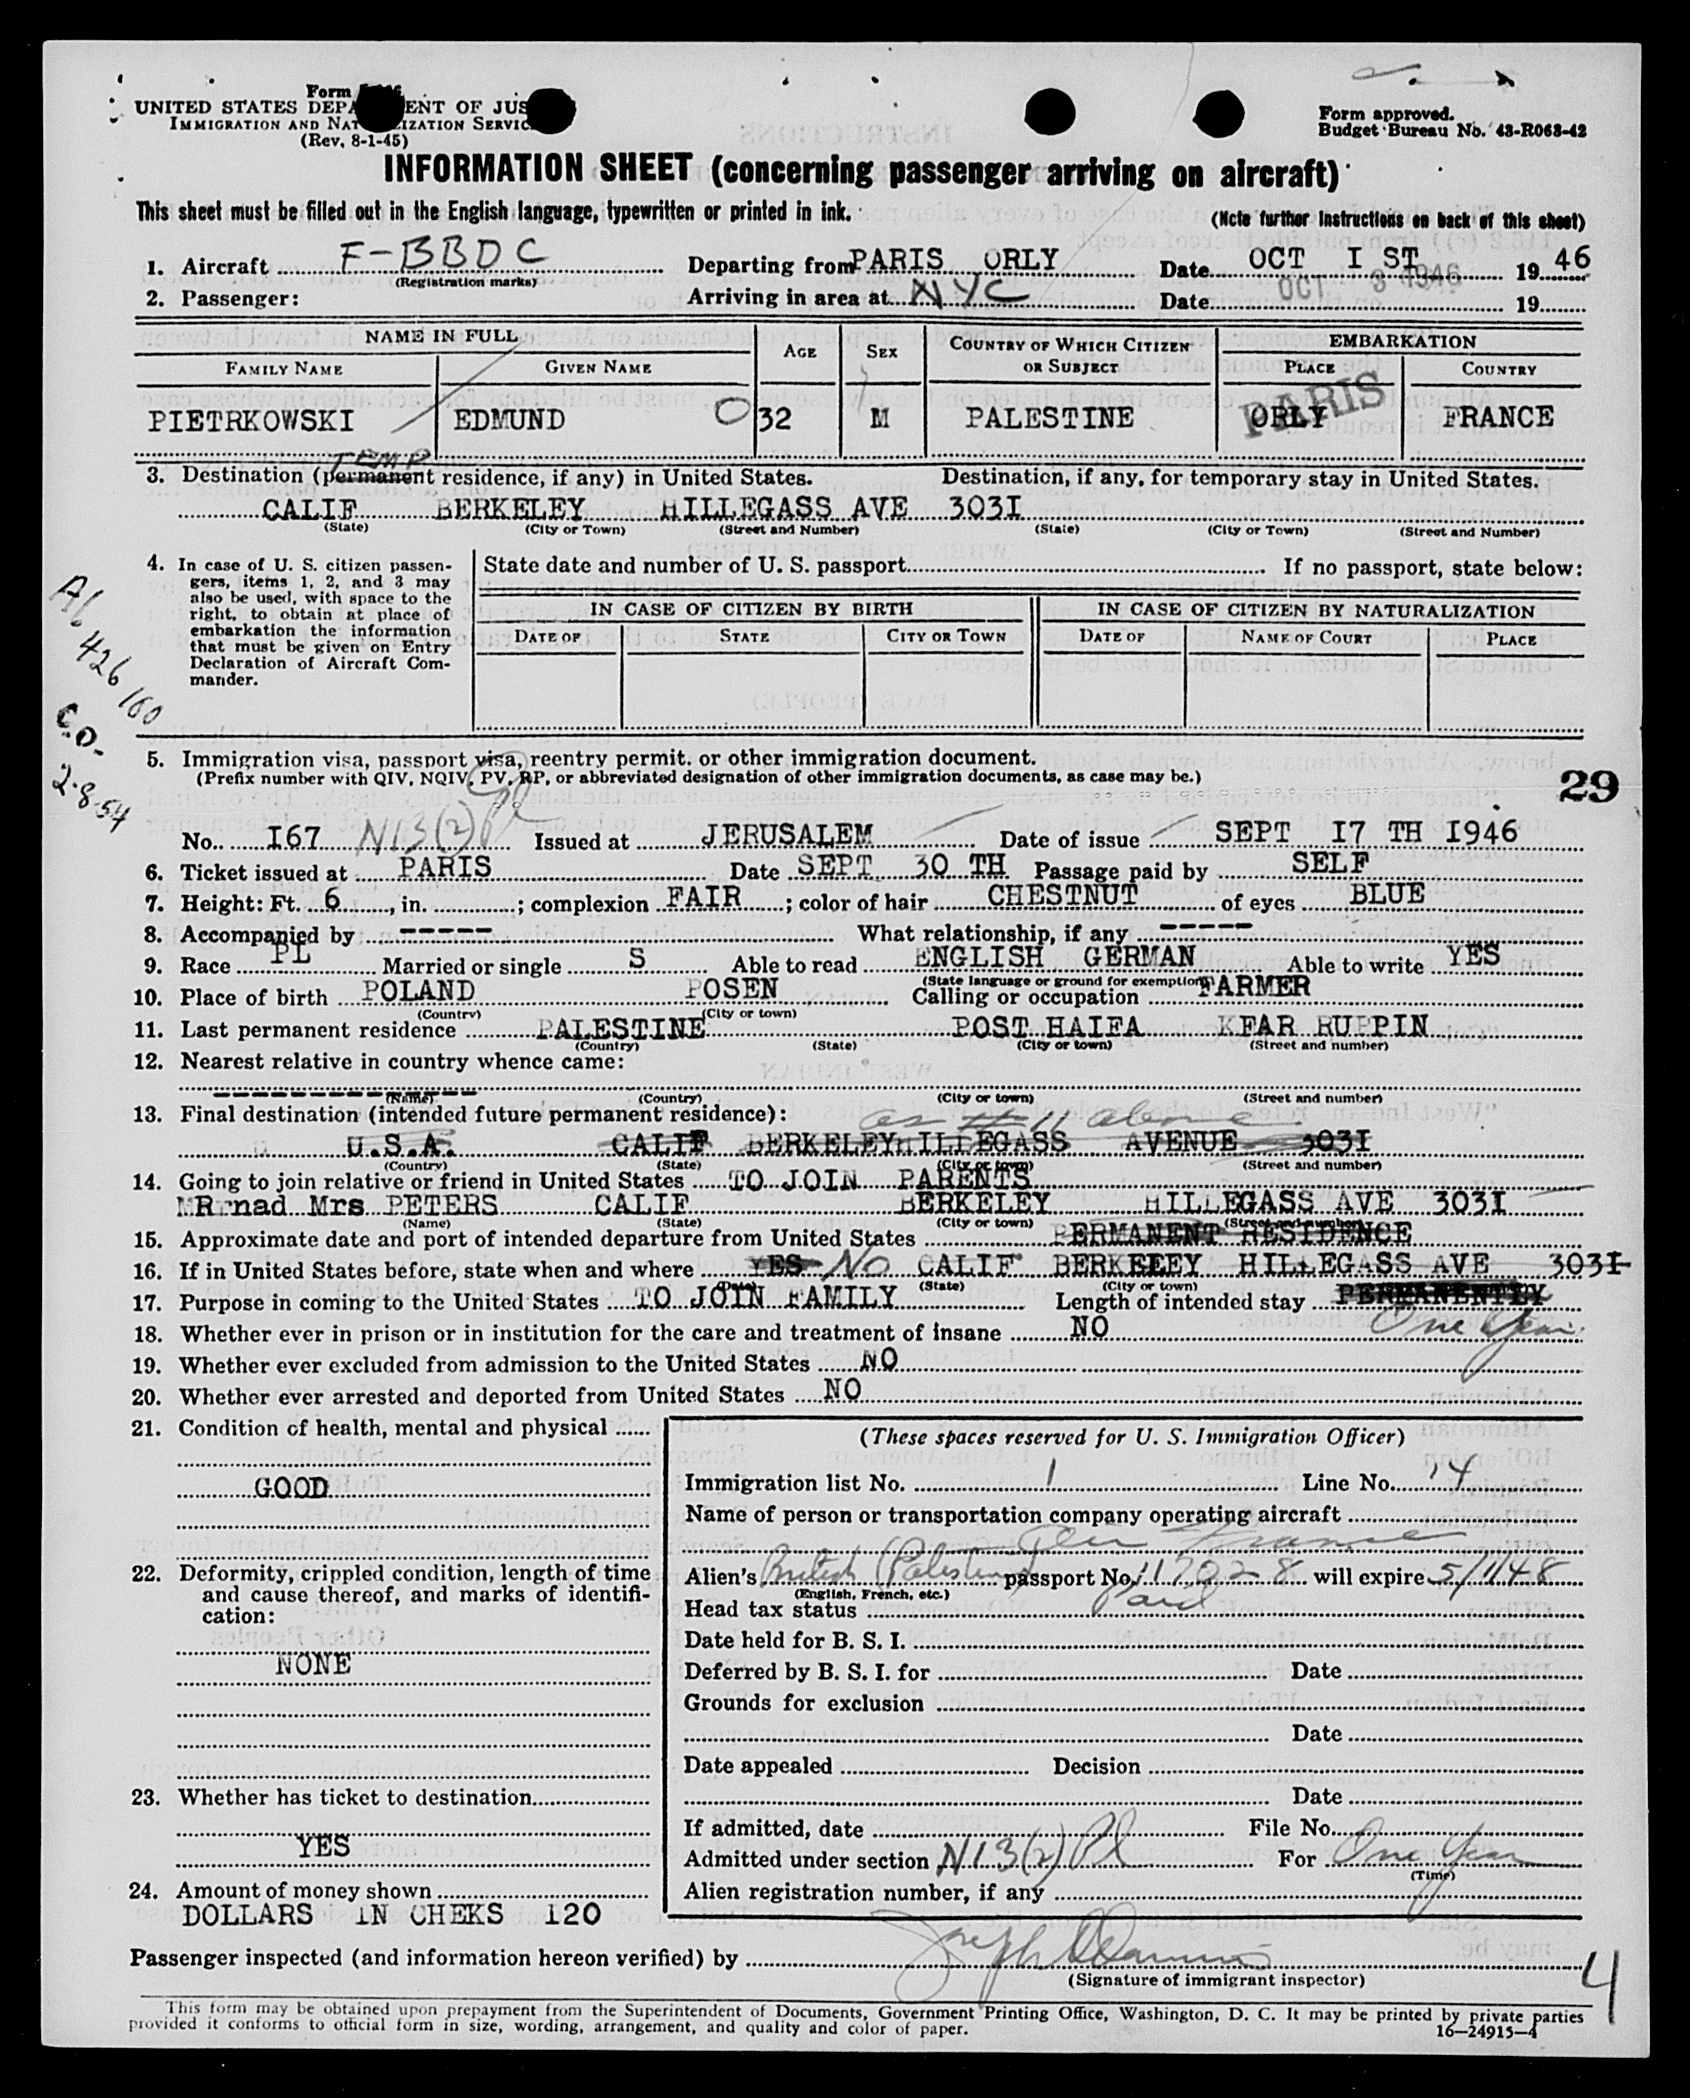 Form
UNITED STATES DEPARTMENT OF JUS
IMMIGRATION AND NATURALIZATION SERVIC
(Rev. 8-1-45)
Form approved.
Budget Bureau No. 43-R063-42
INFORMATION SHEET (concerning passenger arriving on aircraft)
This sheet must be filled out in the English language, typewritten or printed in ink.
(Note further instructions on back of this sheet)
1. Aircraft F-BBDC Departing from PARIS ORLY Date OCT I ST 1946
(Registration marks)
2. Passenger: Arriving in area at NYC Date OCT 3 1946 19
NAME IN FULL AGE SEX COUNTRY OF WHICH CITIZEN OR SUBJECT EMBARKATION
FAMILY NAME GIVEN NAME PLACE COUNTRY
PIETRKOWSKI EDMUND O 32 M PALESTINE ORLY PARIS FRANCE
TEMP
3. Destination (permanent residence, if any) in United States. Destination, if any, for temporary stay in United States.
CALIF BERKELEY HILLEGASS AVE 303I
(State) (City or Town) (Street and Number) (State) (City or Town) (Street and Number)
4. In case of U. S. citizen passengers, items 1, 2, and 3 may also be used, with space to the right, to obtain at place of embarkation the information that must be given on Entry Declaration of Aircraft Commander.
State date and number of U. S. passport If no passport, state below:
IN CASE OF CITIZEN BY BIRTH IN CASE OF CITIZEN BY NATURALIZATION
DATE OF STATE CITY OR TOWN DATE OF NAME OF COURT PLACE
A6 426 160
C.O.
2-8-54
5. Immigration visa, passport visa, reentry permit, or other immigration document.
(Prefix number with QIV, NQIV, PV, RP, or abbreviated designation of other immigration documents, as case may be.)
29
No. I67 N13(2)Pl Issued at JERUSALEM Date of issue SEPT I7 TH I946
6. Ticket issued at PARIS Date SEPT 30 TH Passage paid by SELF
7. Height: Ft. 6, in. ; complexion FAIR ; color of hair CHESTNUT of eyes BLUE
8. Accompanied by ----- What relationship, if any -----
9. Race PL Married or single S Able to read ENGLISH GERMAN Able to write YES
(State language or ground for exemption)
10. Place of birth POLAND POSEN Calling or occupation FARMER
(Country) (City or town)
11. Last permanent residence PALESTINE POST HAIFA KFAR RUPPIN
(Country) (State) (City or town) (Street and number)
12. Nearest relative in country whence came:
--------------
(Name) (Country) (City or town) (Street and number)
13. Final destination (intended future permanent residence): as #11 above
U.S.A. CALIF BERKELEY HILLEGASS AVENUE 303I
(Country) (State) (City or town) (Street and number)
14. Going to join relative or friend in United States TO JOIN PARENTS
MR nad Mrs PETERS CALIF BERKELEY HILLEGASS AVE 303I
(Name) (State) (City or town) (Street and number)
15. Approximate date and port of intended departure from United States PERMANENT RESIDENCE
16. If in United States before, state when and where YES No CALIF BERKELEY HILLEGASS AVE 303I
(Date) (State) (City or town)
17. Purpose in coming to the United States TO JOIN FAMILY Length of intended stay PERMANENTLY
One Year
18. Whether ever in prison or in institution for the care and treatment of insane NO
19. Whether ever excluded from admission to the United States NO
20. Whether ever arrested and deported from United States NO
21. Condition of health, mental and physical
GOOD
22. Deformity, crippled condition, length of time and cause thereof, and marks of identification:
NONE
23. Whether has ticket to destination
YES
24. Amount of money shown
DOLLARS IN CHEKS I20
(These spaces reserved for U. S. Immigration Officer)
Immigration list No. 1 Line No. 4
Name of person or transportation company operating aircraft
Air France
Alien's British (Palestine) passport No. 117028 will expire 5/1/48
(English, French, etc.)
Head tax status Paid
Date held for B. S. I.
Deferred by B. S. I. for Date
Grounds for exclusion
Date
Date appealed Decision
Date
If admitted, date File No.
Admitted under section N13(2)Pl For One Year
(Time)
Alien registration number, if any
Passenger inspected (and information hereon verified) by
(Signature of immigrant inspector)
4
This form may be obtained upon prepayment from the Superintendent of Documents, Government Printing Office, Washington, D. C. It may be printed by private parties
provided it conforms to official form in size, wording, arrangement, and quality and color of paper.
16—24915-4